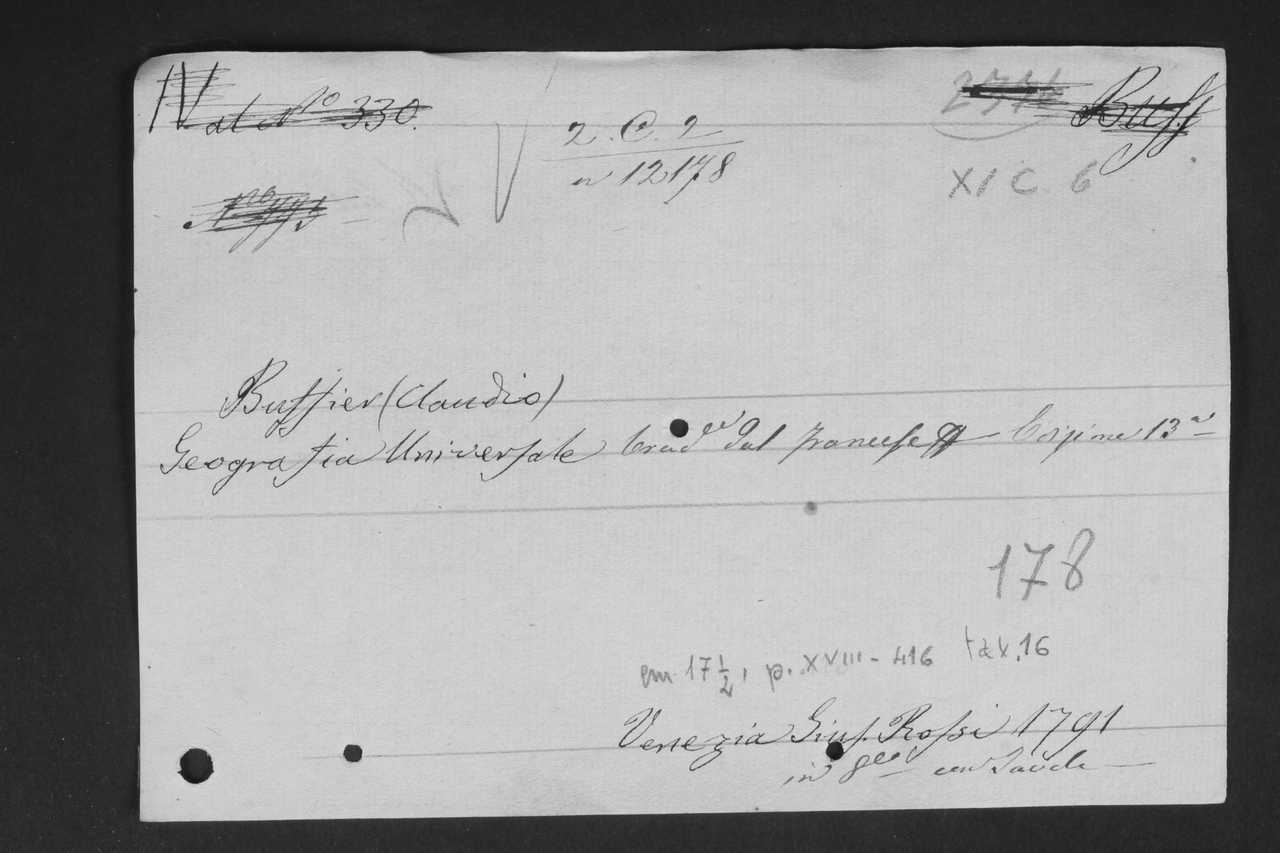 IV al No 330.
2374
Buff
2. C. 2
n 12178
XI C 6
Buffier (Claudio)
Geografia Universale trad. dal francese Edizione 13a
178
cm 17 1/2, p. XVIII-416 tav. 16
Venezia Gius. Rossi 1791
in 8vo con tavole